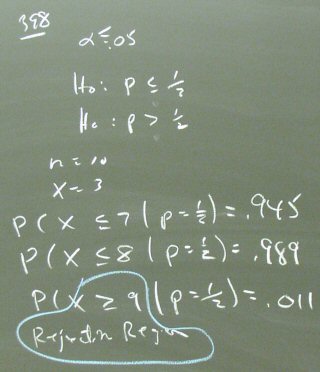 398
α ≤ .05
H₀: P ≤ 1/2
Hₐ: P > 1/2
n = 10
X = 3
P(X ≤ 7 | P = 1/2) = .945
P(X ≤ 8 | P = 1/2) = .989
P(X ≥ 9 | P = 1/2) = .011
Rejection Region